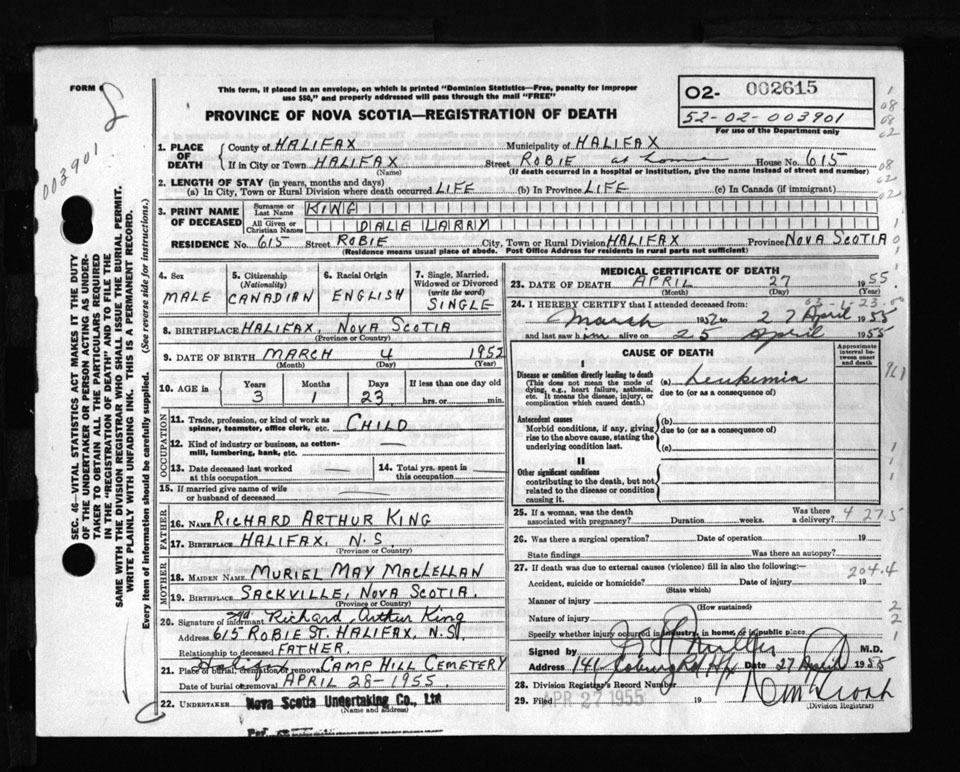 FORM 6
This form, if placed in an envelope, on which is printed "Dominion Statistics—Free, penalty for improper
use $50," and properly addressed will pass through the mail "FREE"
PROVINCE OF NOVA SCOTIA—REGISTRATION OF DEATH
02- 002615
52-02-003901
For use of the Department only
003901
SEC. 46—VITAL STATISTICS ACT MAKES IT THE DUTY
OF THE UNDERTAKER OR PERSON ACTING AS UNDER-
TAKER TO OBTAIN ALL THE PARTICULARS REQUIRED
IN THE "REGISTRATION OF DEATH" AND TO FILE THE
SAME WITH THE DIVISION REGISTRAR WHO SHALL ISSUE THE BURIAL PERMIT.
WRITE PLAINLY WITH UNFADING INK. THIS IS A PERMANENT RECORD.
Every item of information should be carefully supplied. (See reverse side for instructions.)
1. PLACE OF DEATH County of HALIFAX Municipality of HALIFAX
If in City or Town HALIFAX Street ROBIE at home House No. 615
(Name) (If death occurred in a hospital or institution, give the name instead of street and number)
2. LENGTH OF STAY (in years, months and days)
(a) In City, Town or Rural Division where death occurred LIFE (b) In Province LIFE (c) In Canada (if immigrant)
3. PRINT NAME OF DECEASED Surname or Last Name KING
All Given or Christian Names DALE LARRY
RESIDENCE No. 615 Street ROBIE City, Town or Rural Division HALIFAX Province NOVA SCOTIA
(Residence means usual place of abode. Post Office Address for residents in rural parts not sufficient)
4. Sex MALE
5. Citizenship (Nationality) CANADIAN
6. Racial Origin ENGLISH
7. Single, Married, Widowed or Divorced (write the word) SINGLE
8. BIRTHPLACE HALIFAX, NOVA SCOTIA
(Province or Country)
9. DATE OF BIRTH MARCH 4 1952
(Month) (Day) (Year)
10. AGE in Years 3 Months 1 Days 23 If less than one day old hrs. or min.
OCCUPATION
11. Trade, profession, or kind of work as
spinner, teamster, office clerk, etc. CHILD
12. Kind of industry or business, as cotton-
mill, lumbering, bank, etc. —
13. Date deceased last worked
at this occupation —
14. Total yrs. spent in
this occupation —
15. If married give name of wife
or husband of deceased —
FATHER
16. NAME RICHARD ARTHUR KING
17. BIRTHPLACE HALIFAX, N.S.
(Province or Country)
MOTHER
18. MAIDEN NAME MURIEL MAY MACLELLAN
19. BIRTHPLACE SACKVILLE, NOVA SCOTIA.
(Province or Country)
20. Signature of informant Richard Arthur King
Address 615 ROBIE ST. HALIFAX, N.S.
Relationship to deceased FATHER.
21. Place of burial, cremation or removal Halifax CAMP HILL CEMETERY
Date of burial or removal APRIL 28-1955.
22. UNDERTAKER Nova Scotia Undertaking Co., Ltd
(Name and address)
Per
MEDICAL CERTIFICATE OF DEATH
23. DATE OF DEATH APRIL 27 1955
(Month) (Day) (Year)
24. I HEREBY CERTIFY that I attended deceased from:
March 1952 to 27 April 1955
and last saw him alive on 25 April 1955
CAUSE OF DEATH
Approximate interval between onset and death
I
Disease or condition directly leading to death
(This does not mean the mode of
dying, e.g., heart failure, asthenia,
etc. It means the disease, injury, or
complication which caused death.)
(a) Leukemia
due to (or as a consequence of)
Antecedent causes
Morbid conditions, if any, giving
rise to the above cause, stating the
underlying condition last.
(b)
due to (or as a consequence of)
(c)
II
Other significant conditions
contributing to the death, but not
related to the disease or condition
causing it.
25. If a woman, was the death
associated with pregnancy? Duration weeks. Was there
a delivery?
26. Was there a surgical operation? Date of operation 19
State findings Was there an autopsy?
27. If death was due to external causes (violence) fill in also the following:
204.4
Accident, suicide or homicide? Date of injury 19
(State which)
Manner of injury
(How sustained)
Nature of injury
Specify whether injury occurred in industry, in home, or in public place
Signed by M.D.
Address 141 Coburg Rd Hfx Date 27 April 1955
28. Division Registrar's Record Number
29. Filed APR 27 1955 19
(Division Registrar)